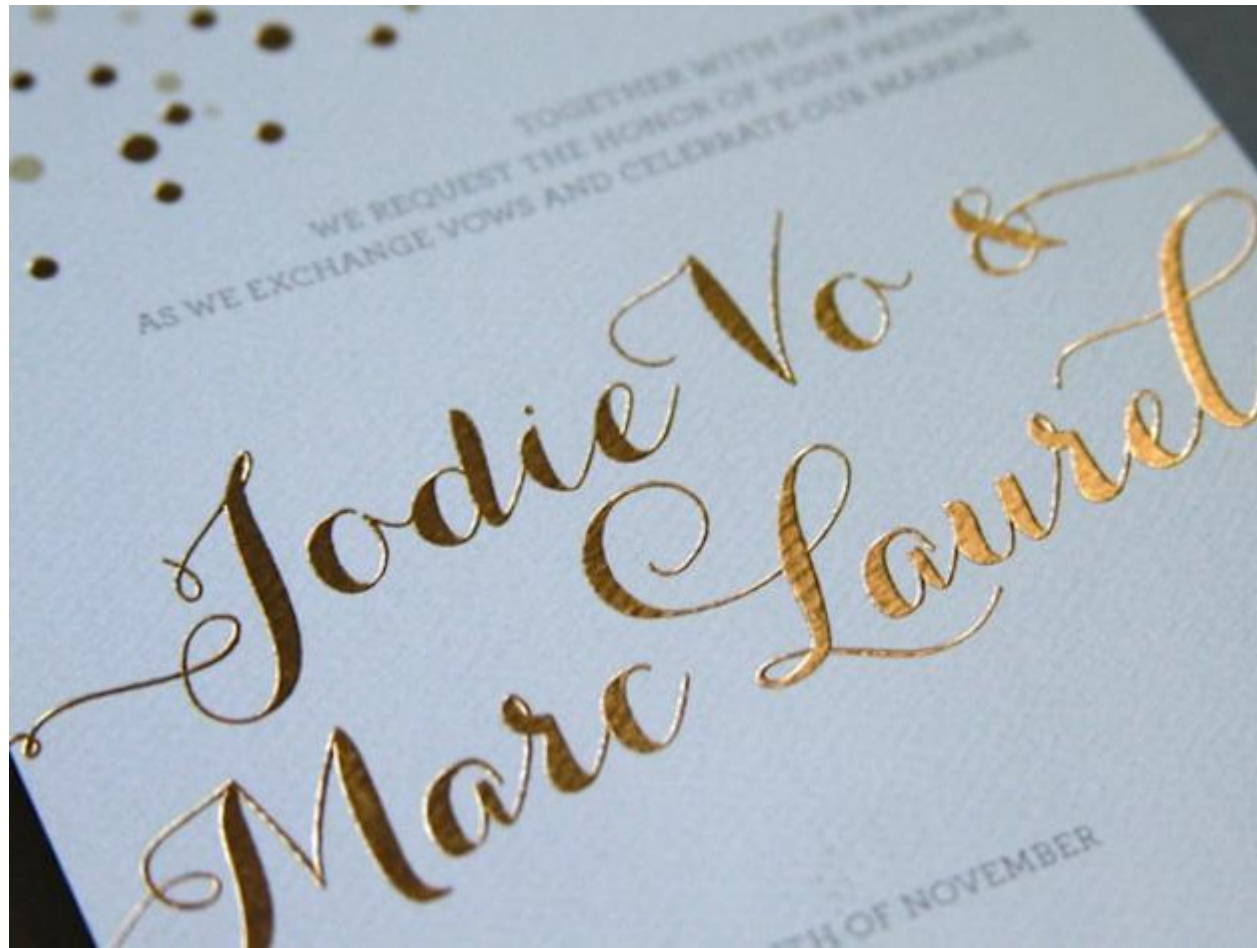 TOGETHER WITH OUR
WE REQUEST THE HONOR OF YOUR PRESENCE
AS WE EXCHANGE VOWS AND CELEBRATE OUR MARRIAGE
Jodie Vo &
Marc Laurel
OF NOVEMBER